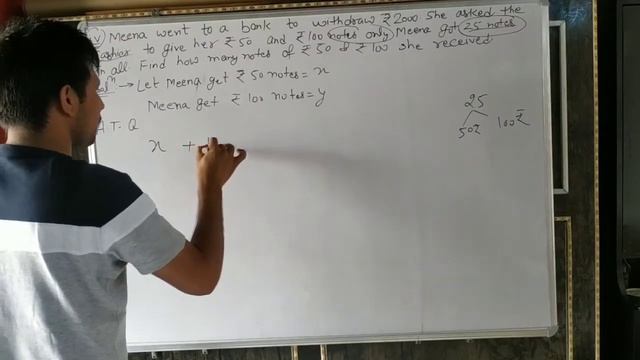 v) Meena went to a bank to withdraw ₹2000 She asked the
cashier to give her ₹50 and ₹100 notes only Meena got 25 notes
in all. Find how many notes of ₹50 & ₹100 she received
Solⁿ → Let Meena get ₹50 notes = x
Meena get ₹100 notes = y
A.T.Q
x +
25
50₹ 100₹